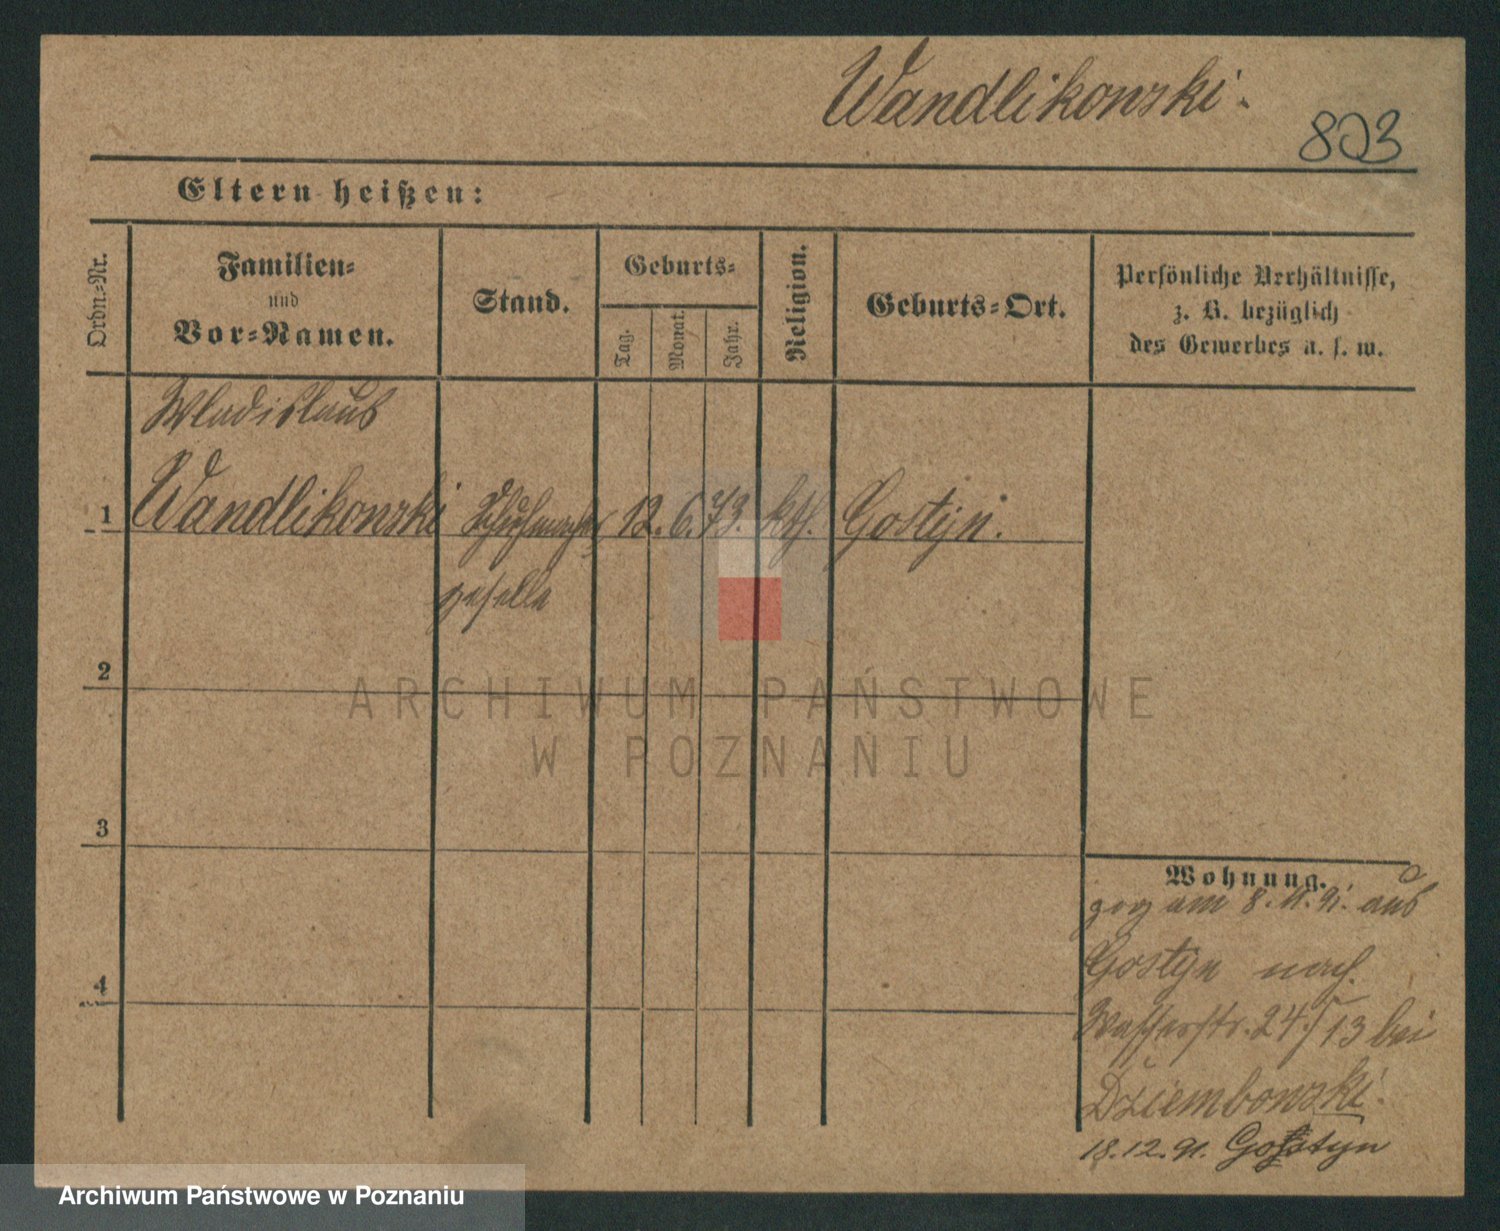 Wandlikowski.
823
Eltern heißen:
Ordn.-Nr.
Familien-
und
Vor-Namen.
Stand.
Geburts-
Tag.
Monat.
Jahr.
Religion.
Geburts-Ort.
Persönliche Verhältnisse,
z. B. bezüglich
des Gewerbes u. s. w.
Wladislaus
1 Wandlikowski Schuhmacher 12. 6. 73. kth. Gostyn.
geselle
2
3
4
ARCHIWUM PAŃSTWOWE
W POZNANIU
Wohnung.
zog am 8. 11. 91. aus
Gostyn nach
Wasserstr. 24./13 bei
Dziembowski.
18.12.91. Gostyn
Archiwum Państwowe w Poznaniu